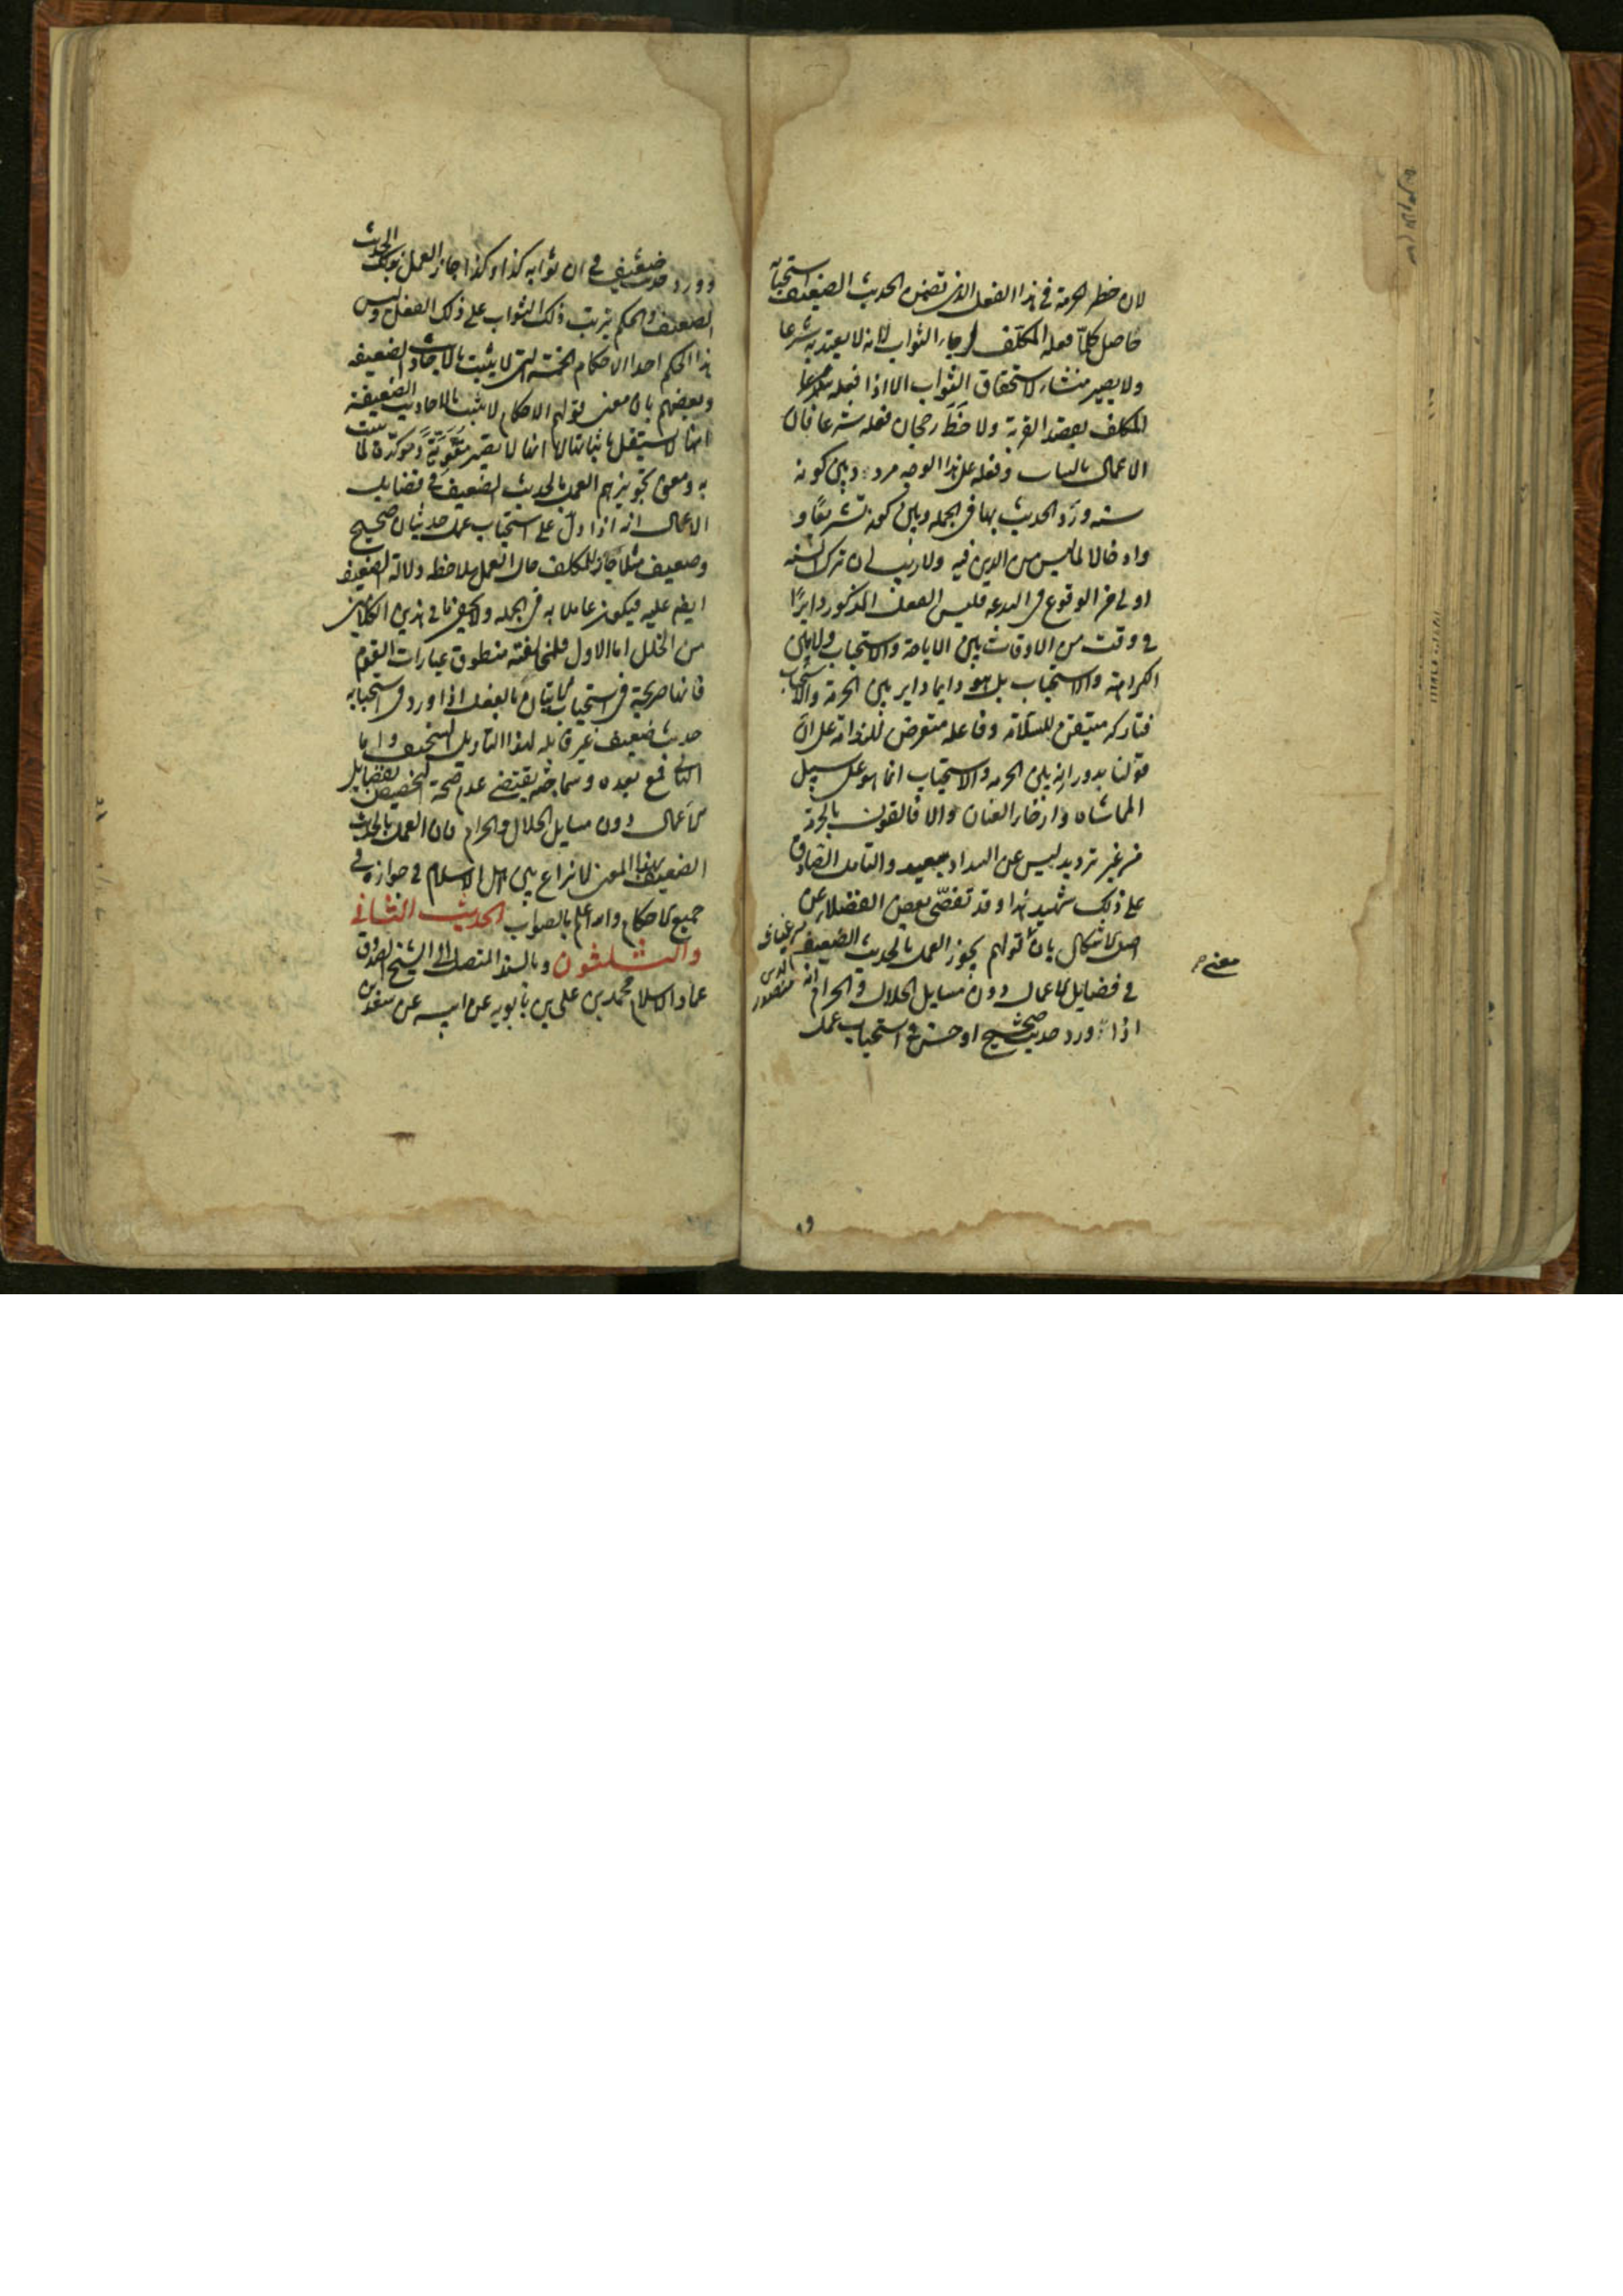 لان خطر الحرمة في هذا الفعل الذي تضمن الحديث الضعيف استحبابه
حاصل كلما فعله المكلف لرجاء الثواب لانه لا يعتد به شرعا
ولا يصير منشاء لاستحقاق الثواب الا اذا فعله
المكلف بقصد القربة ولاحظ رجحان فعله شرعا فان
الاعمال بالنيات وفعله على هذا الوجه مردد بين كونه
سنه ورد الحديث بها في الجمله وبين كونه تشريعا و
وادخالا لما ليس من الدين فيه ولا ريب ان ترك السنه
اولى من الوقوع في البدعه فليس الفعل المذكور دايرا
في وقت من الاوقات بين الاباحة والاستحباب ولا بين
الكراهة والاستحباب بل هو دايما داير بين الحرمة والاستحباب
فتاركه متيقن للسلامة وفاعله متعرض للندامة على ان
قولنا بدورانه بين الحرمه والاستحباب انما هو على سبيل
المماشاه وارخاء العنان والا فالقول بالحرمة
من غير ترديد ليس عن السداد ببعيد والتامل الصادق
على ذلك شهيد هذا وقد تفصى بعض الفضلاء عن
اصل الاشكال بان قولهم يجوز العمل بالحديث الضعيف
في فضايل الاعمال دون مسايل الحلال والحرام انه
اذا ورد حديث صحيح او حسن في استحباب عمل
معنى
وورد حديث ضعيف في ان ثوابه كذا وكذا جاز العمل بذلك الحديث
الضعيف والحكم بترتب ذلك الثواب على ذلك الفعل وليس
هذا الحكم احد الاحكام الخمسة التي لا يثبت بالاحاديث الضعيفه
وبعضهم بان معنى قولهم الاحكام لا يثبت بالاحاديث الضعيفة
انها لا يستقل باثباتها لا انها لا يصير مقوية ومؤكدة لما
به ومعنى تجويزهم العمل بالحديث الضعيف في فضايل
الاعمال انه اذا دل على استحباب عمل حديثان صحيح
وضعيف مثلا جاز للمكلف حال العمل ملاحظه دلالة الضعيف
ايضا عليه فيكون عاملا به في الجمله ولا يخفى ما في هذين الكلامين
من الخلل اما الاول فلمخالفته منطوق عبارات القوم
فانها صريحة في استحباب الاتيان بالفعل اذا ورد في استحبابه
حديث ضعيف غير قابله لهذا التاويل السخيف واما
الثاني فمع بعده وسماجته يقتضي عدم صحة التخصيص بفضايل
الاعمال دون مسايل الحلال والحرام فان العمل بالحديث
الضعيف بهذا المعنى لا نزاع بين اهل الاسلام في جوازه في
جميع الاحكام والله اعلم بالصواب الحديث الثاني
والثلثون وبالسند المتصل الى الشيخ الصدوق
عماد الاسلام محمد بن علي بن بابويه عن ابيه عن سعد بن